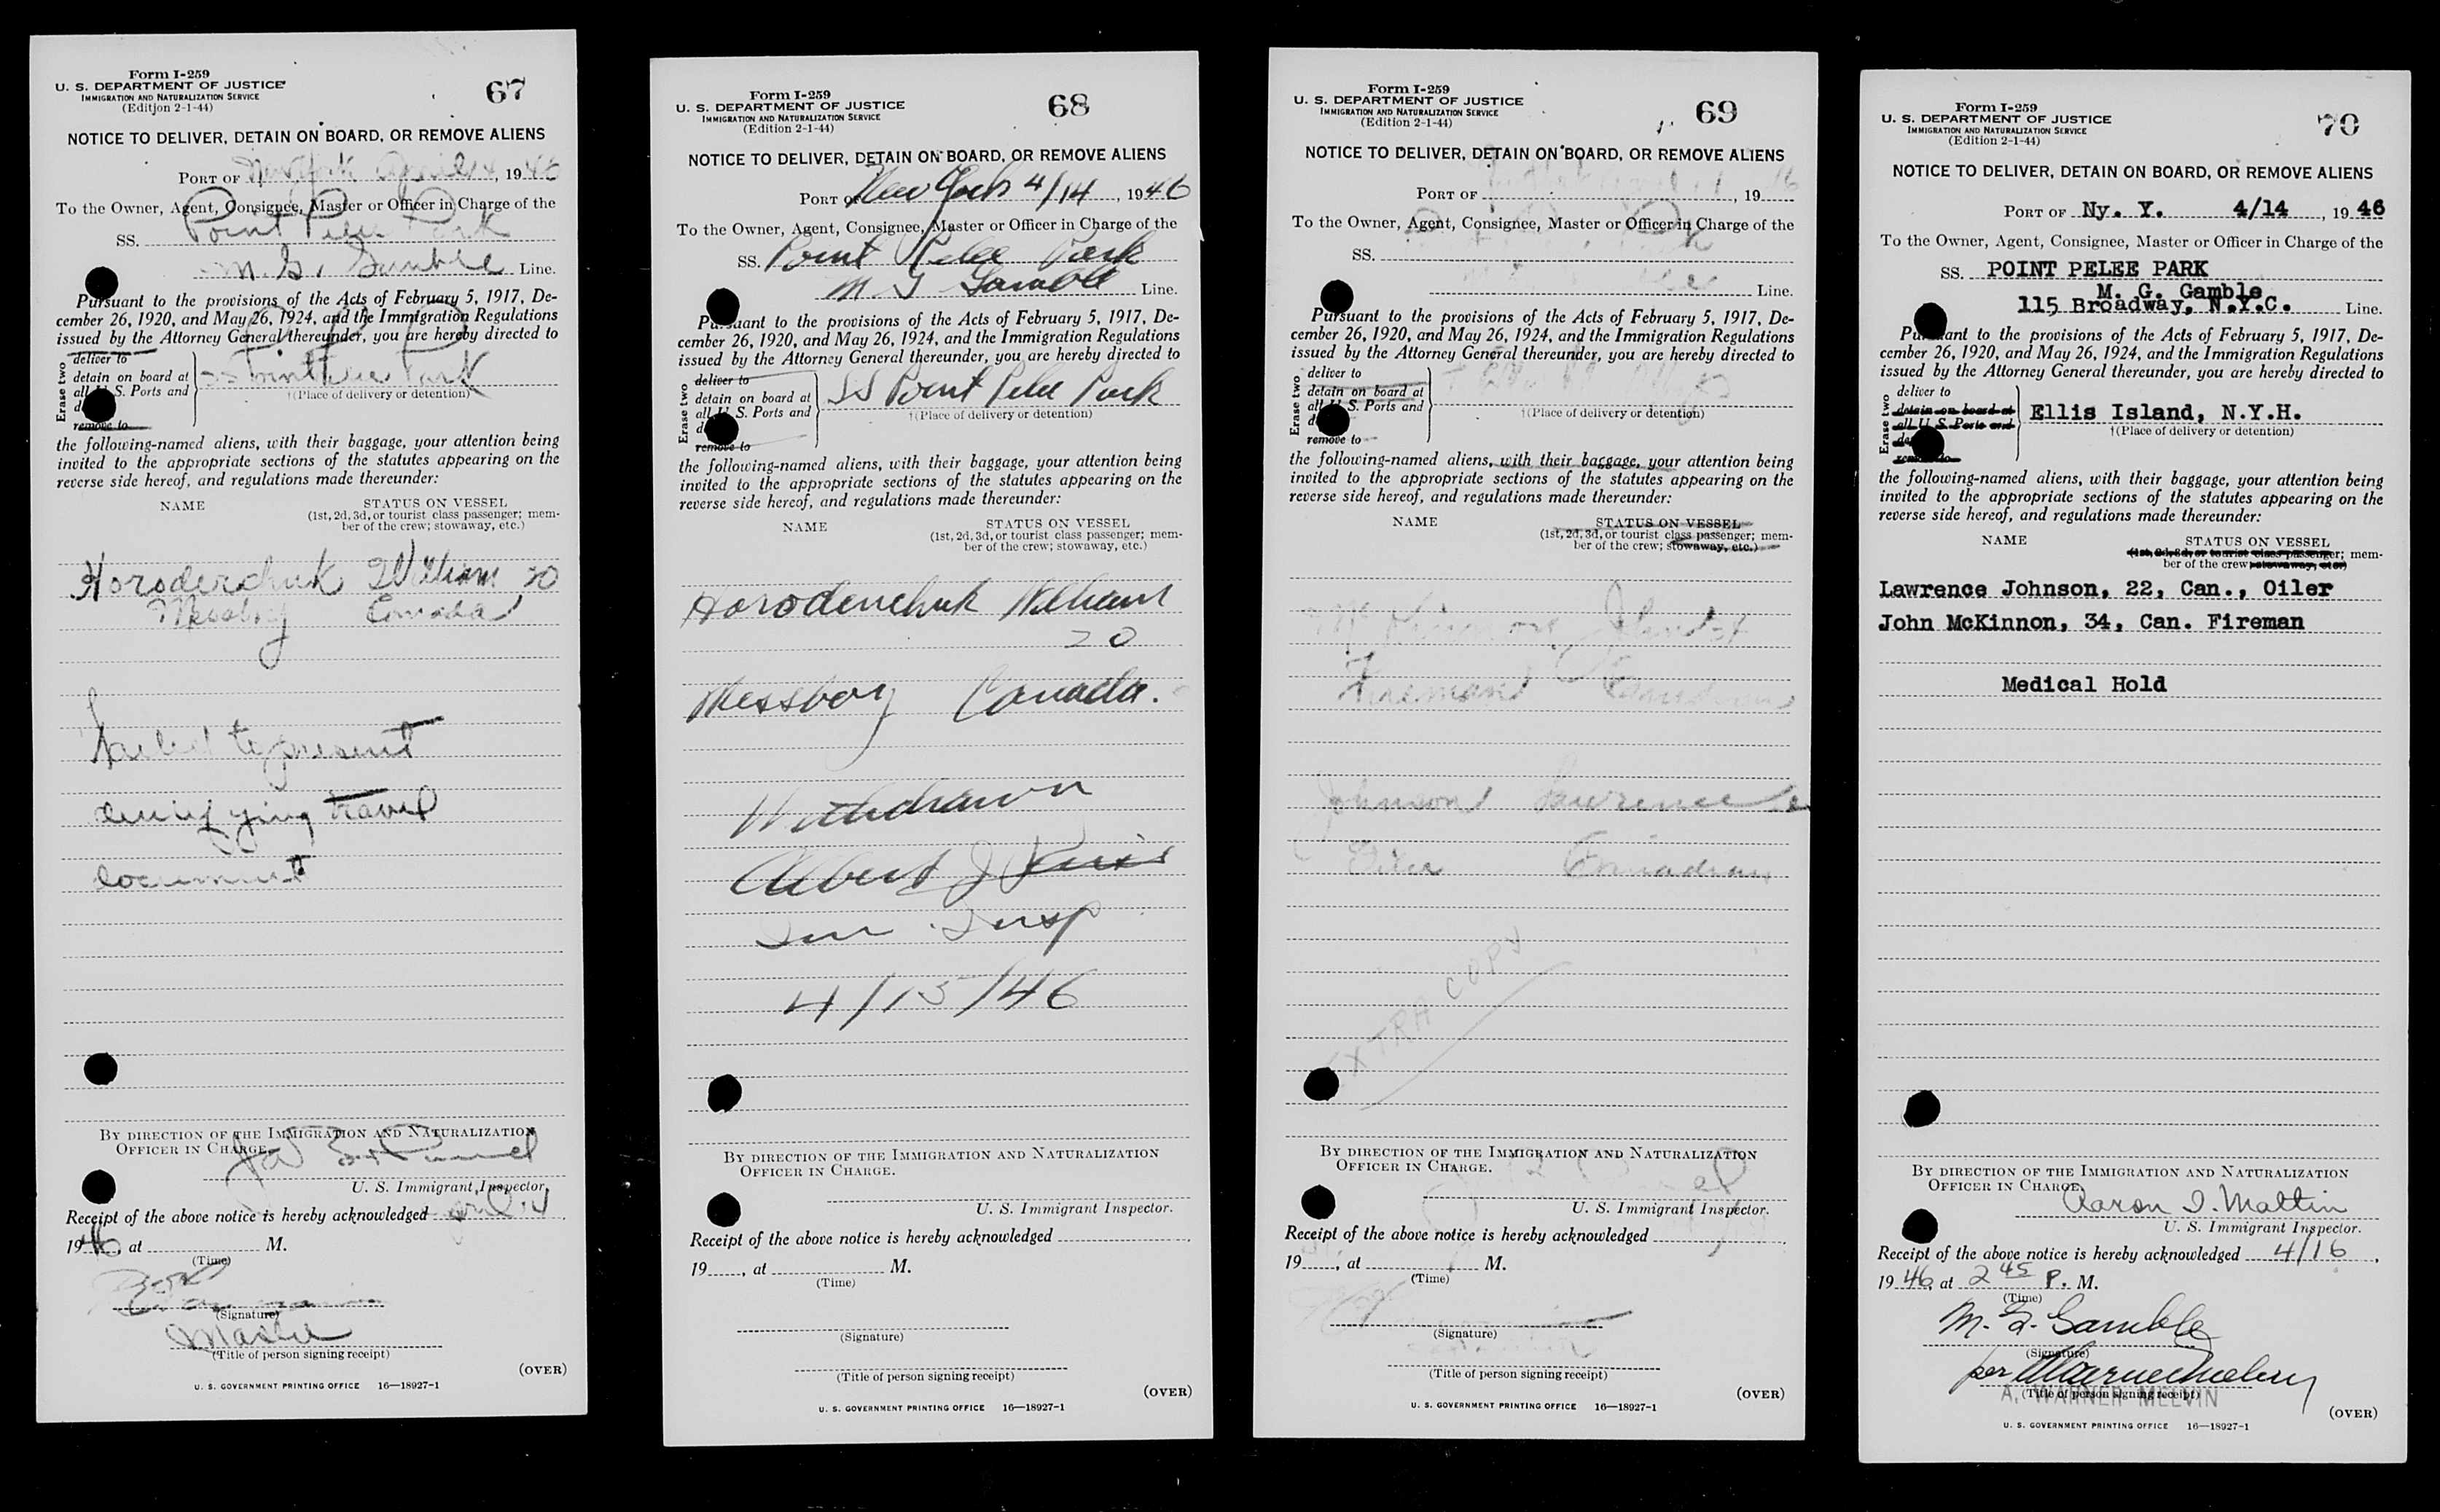 Form I-259
U. S. DEPARTMENT OF JUSTICE
IMMIGRATION AND NATURALIZATION SERVICE
(Edition 2-1-44)
67
NOTICE TO DELIVER, DETAIN ON BOARD, OR REMOVE ALIENS
PORT OF New York April 14, 1946
To the Owner, Agent, Consignee, Master or Officer in Charge of the
SS. Point Pelee Park
M. G. Gamble Line.
Pursuant to the provisions of the Acts of February 5, 1917, De-
cember 26, 1920, and May 26, 1924, and the Immigration Regulations
issued by the Attorney General thereunder, you are hereby directed to
Erase two
deliver to
detain on board at
all U. S. Ports and
remove to
SS Point Pelee Park
†(Place of delivery or detention)
the following-named aliens, with their baggage, your attention being
invited to the appropriate sections of the statutes appearing on the
reverse side hereof, and regulations made thereunder:
NAME STATUS ON VESSEL
(1st, 2d, 3d, or tourist class passenger; mem-
ber of the crew; stowaway, etc.)
William 20
Messboy Canada
Failed to present
travel
document
BY DIRECTION OF THE IMMIGRATION AND NATURALIZATION
OFFICER IN CHARGE.
U. S. Immigrant Inspector.
Receipt of the above notice is hereby acknowledged April 14
1946, at M.
(Time)
(Signature)
Master
(Title of person signing receipt)
(OVER)
U. S. GOVERNMENT PRINTING OFFICE 16—18927-1
Form I-259
U. S. DEPARTMENT OF JUSTICE
IMMIGRATION AND NATURALIZATION SERVICE
(Edition 2-1-44)
68
NOTICE TO DELIVER, DETAIN ON BOARD, OR REMOVE ALIENS
PORT OF New York 4/14, 1946
To the Owner, Agent, Consignee, Master or Officer in Charge of the
SS. Point Pelee Park
M G Gamble Line.
Pursuant to the provisions of the Acts of February 5, 1917, De-
cember 26, 1920, and May 26, 1924, and the Immigration Regulations
issued by the Attorney General thereunder, you are hereby directed to
Erase two
deliver to
detain on board at
all U. S. Ports and
remove to
SS Point Pelee Park
†(Place of delivery or detention)
the following-named aliens, with their baggage, your attention being
invited to the appropriate sections of the statutes appearing on the
reverse side hereof, and regulations made thereunder:
NAME STATUS ON VESSEL
(1st, 2d, 3d, or tourist class passenger; mem-
ber of the crew; stowaway, etc.)
Horodenchuk William
20
Messboy Canada.
Withdrawn
Albert J
Imm. Insp
4/15/46
BY DIRECTION OF THE IMMIGRATION AND NATURALIZATION
OFFICER IN CHARGE.
U. S. Immigrant Inspector.
Receipt of the above notice is hereby acknowledged
19, at M.
(Time)
(Signature)
(Title of person signing receipt)
(OVER)
U. S. GOVERNMENT PRINTING OFFICE 16—18927-1
Form I-259
U. S. DEPARTMENT OF JUSTICE
IMMIGRATION AND NATURALIZATION SERVICE
(Edition 2-1-44)
69
NOTICE TO DELIVER, DETAIN ON BOARD, OR REMOVE ALIENS
PORT OF , 19
To the Owner, Agent, Consignee, Master or Officer in Charge of the
SS.
Line.
Pursuant to the provisions of the Acts of February 5, 1917, De-
cember 26, 1920, and May 26, 1924, and the Immigration Regulations
issued by the Attorney General thereunder, you are hereby directed to
Erase two
deliver to
detain on board at
all U. S. Ports and
remove to
†(Place of delivery or detention)
the following-named aliens, with their baggage, your attention being
invited to the appropriate sections of the statutes appearing on the
reverse side hereof, and regulations made thereunder:
NAME STATUS ON VESSEL
(1st, 2d, 3d, or tourist class passenger; mem-
ber of the crew; stowaway, etc.)
John 34
Fireman Canadian
Johnson Lawrence
Oiler Canadian
EXTRA COPY
BY DIRECTION OF THE IMMIGRATION AND NATURALIZATION
OFFICER IN CHARGE.
U. S. Immigrant Inspector.
Receipt of the above notice is hereby acknowledged
19, at M.
(Time)
(Signature)
(Title of person signing receipt)
(OVER)
U. S. GOVERNMENT PRINTING OFFICE 16—18927-1
Form I-259
U. S. DEPARTMENT OF JUSTICE
IMMIGRATION AND NATURALIZATION SERVICE
(Edition 2-1-44)
70
NOTICE TO DELIVER, DETAIN ON BOARD, OR REMOVE ALIENS
PORT OF Ny. Y. 4/14, 1946
To the Owner, Agent, Consignee, Master or Officer in Charge of the
SS. POINT PELEE PARK
M. G. Gamble
115 Broadway, N.Y.C. Line.
Pursuant to the provisions of the Acts of February 5, 1917, De-
cember 26, 1920, and May 26, 1924, and the Immigration Regulations
issued by the Attorney General thereunder, you are hereby directed to
Erase two
deliver to
detain on board at
all U. S. Ports and
remove to
Ellis Island, N.Y.H.
†(Place of delivery or detention)
the following-named aliens, with their baggage, your attention being
invited to the appropriate sections of the statutes appearing on the
reverse side hereof, and regulations made thereunder:
NAME STATUS ON VESSEL
(1st, 2d, 3d, or tourist class passenger; mem-
ber of the crew; stowaway, etc.)
Lawrence Johnson, 22, Can., Oiler
John McKinnon, 34, Can. Fireman
Medical Hold
BY DIRECTION OF THE IMMIGRATION AND NATURALIZATION
OFFICER IN CHARGE.
Aaron I. Maltin
U. S. Immigrant Inspector.
Receipt of the above notice is hereby acknowledged 4/16,
1946, at 2 45 P. M.
(Time)
M. G. Gamble
(Signature)
per
A. WARNER MELVIN
(Title of person signing receipt)
(OVER)
U. S. GOVERNMENT PRINTING OFFICE 16—18927-1